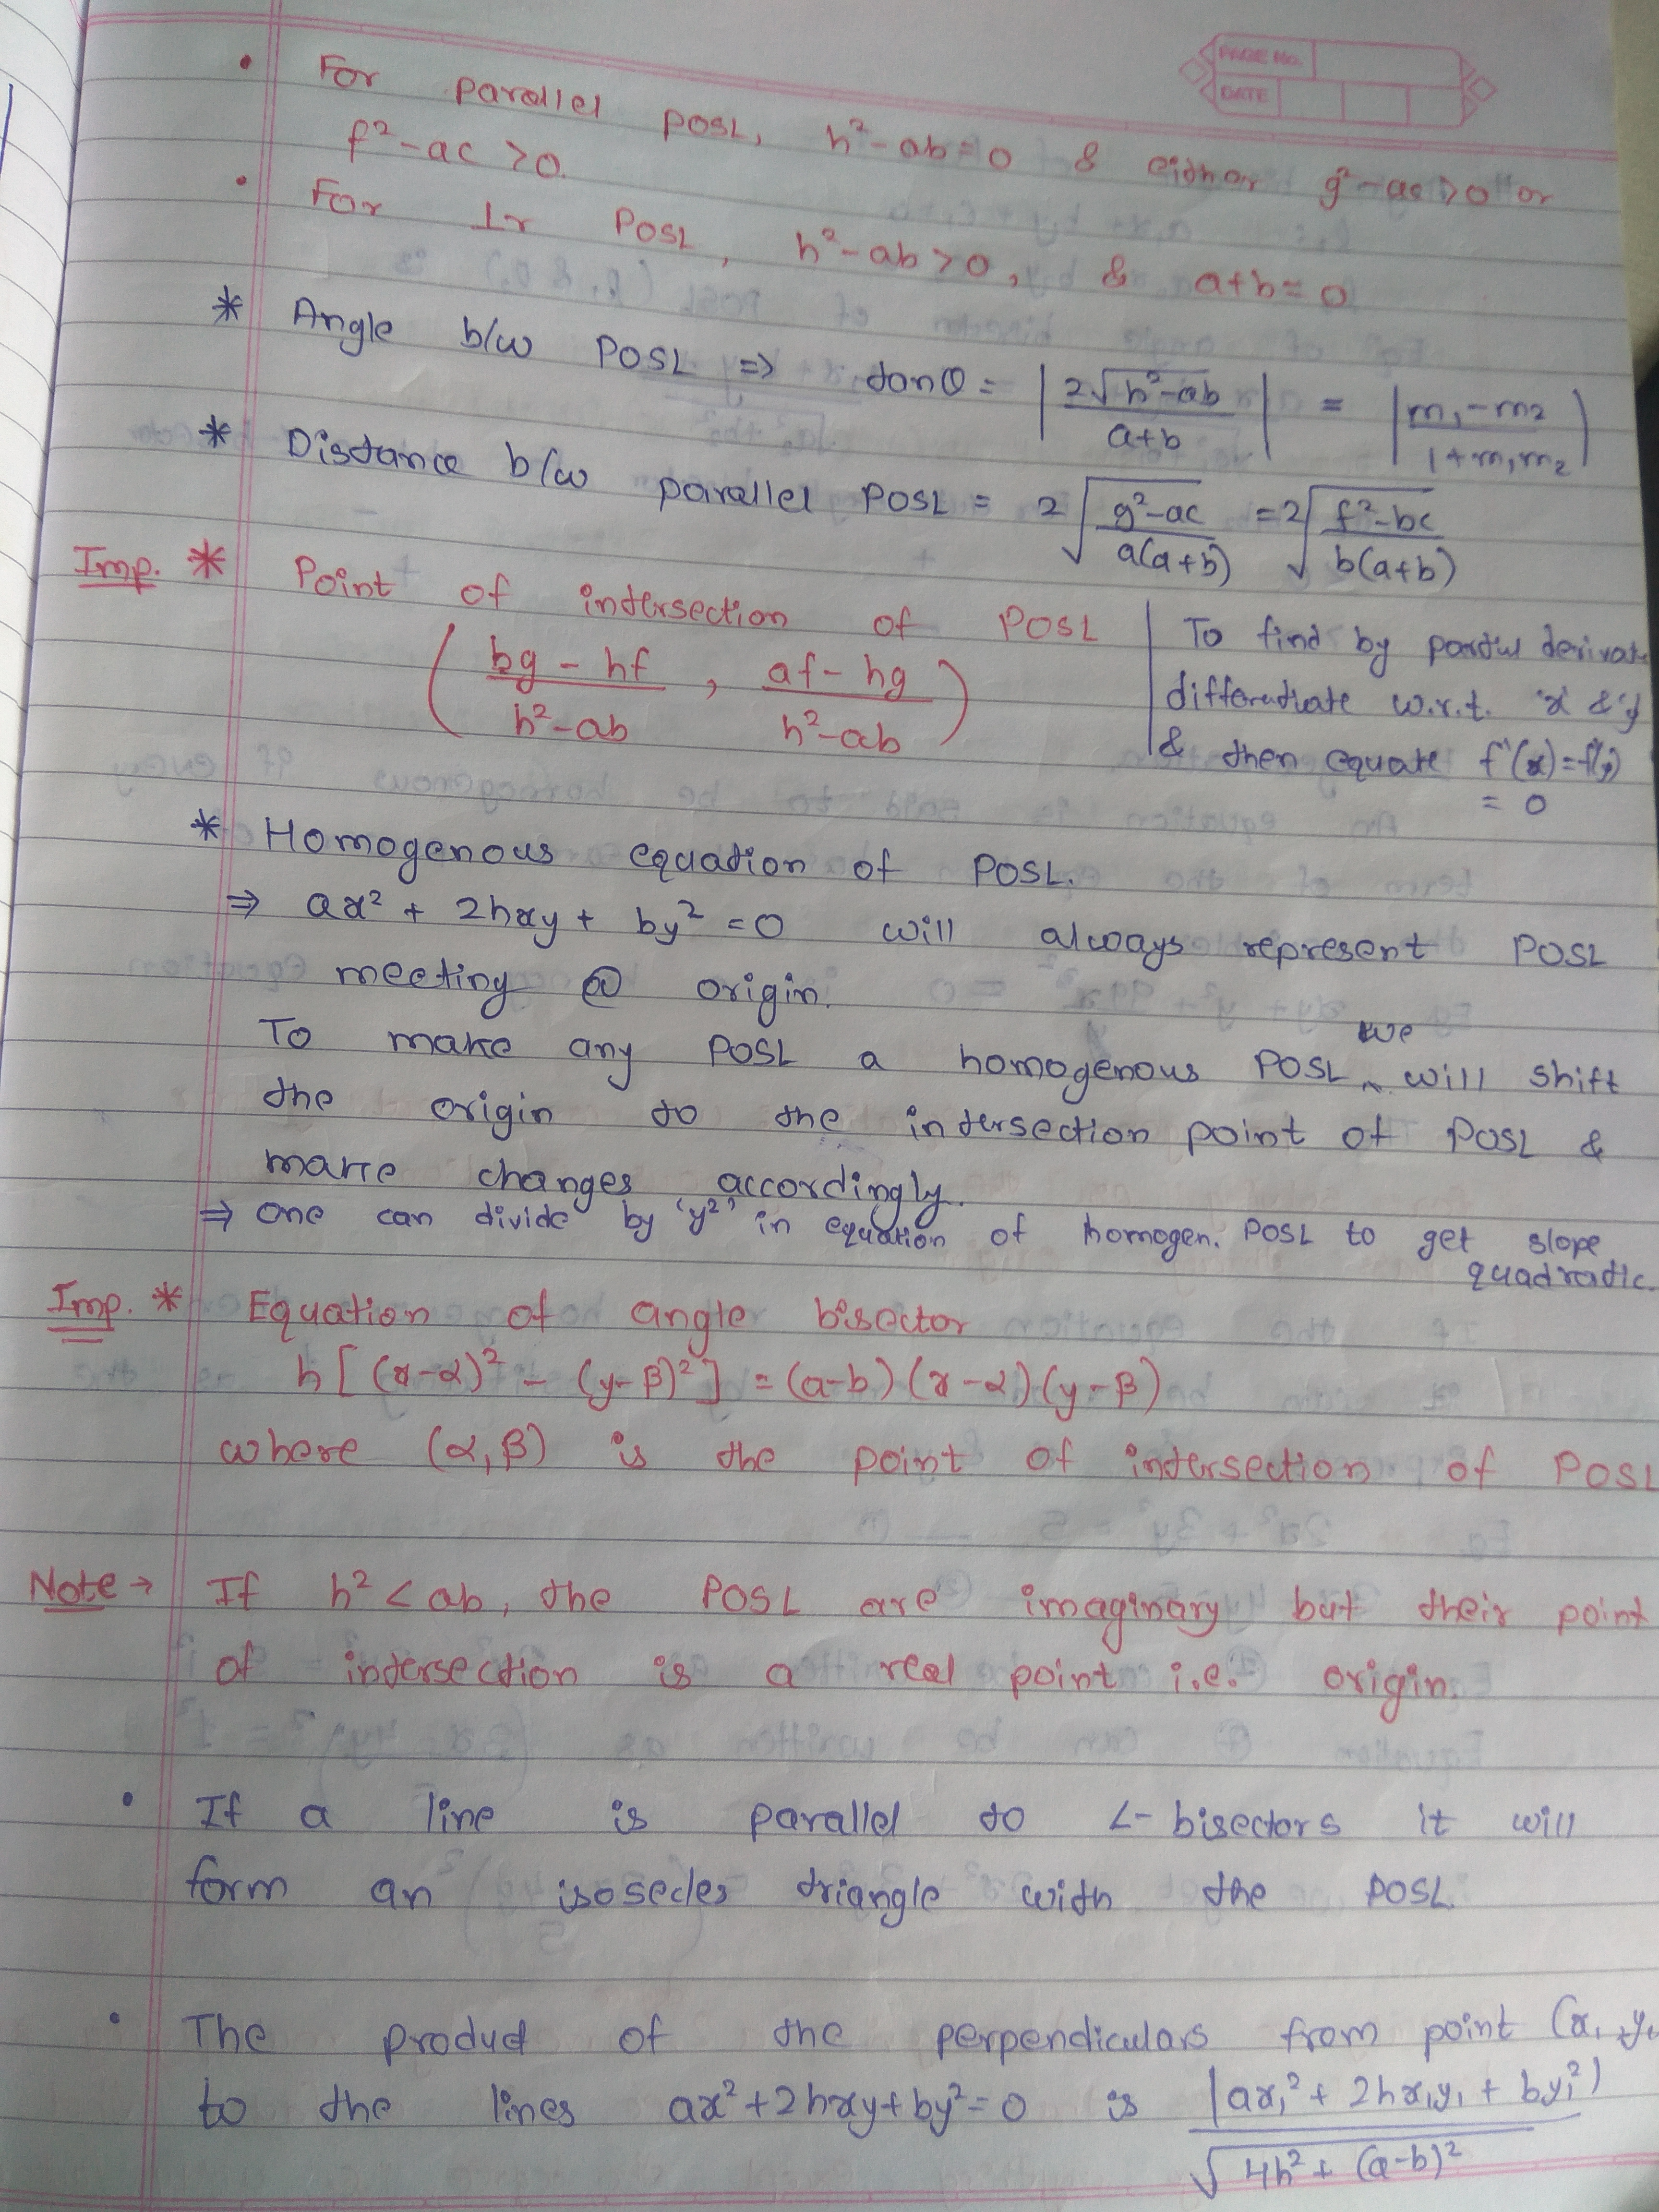 PAGE No.
DATE
• For parallel POSL, h²-ab=0 & either g²-ac>0 or
f²-ac >0.
• For ⊥r POSL, h²-ab>0, & a+b=0
* Angle b/w POSL => tanθ = |2√(h²-ab)/(a+b)| = |(m₁-m₂)/(1+m₁m₂)|
* Distance b/w parallel POSL = 2√((g²-ac)/(a(a+b))) = 2√((f²-bc)/(b(a+b)))
Imp. * Point of intersection of POSL
((bg-hf)/(h²-ab), (af-hg)/(h²-ab))
To find by partial
differentiate w.r.t. 'x' & 'y'
& then equate f'(x)=f'(y)
= 0
* Homogenous equation of POSL.
⇒ ax² + 2hxy + by² = 0 will always represent POSL
meeting @ origin.
To make any POSL a homogenous POSL we will shift
the origin to the intersection point of POSL &
make changes accordingly.
⇒ One can divide by 'y²' in equation of homogen. POSL to get slope
quadratic.
Imp. * Equation of angle bisector
h[(x-α)² - (y-β)²] = (a-b)(x-α)(y-β)
where (α,β) is the point of intersection of POSL
Note → If h² < ab, the POSL are imaginary but their point
of intersection is a real point i.e. origin.
• If a line is parallel to ∠-bisectors it will
form an isosecles triangle with the POSL.
• The product of the perpendiculars from point (x₁, y₁
to the lines ax²+2hxy+by²=0 is |ax₁² + 2hx₁y₁ + by₁²|/√(4h² + (a-b)²)